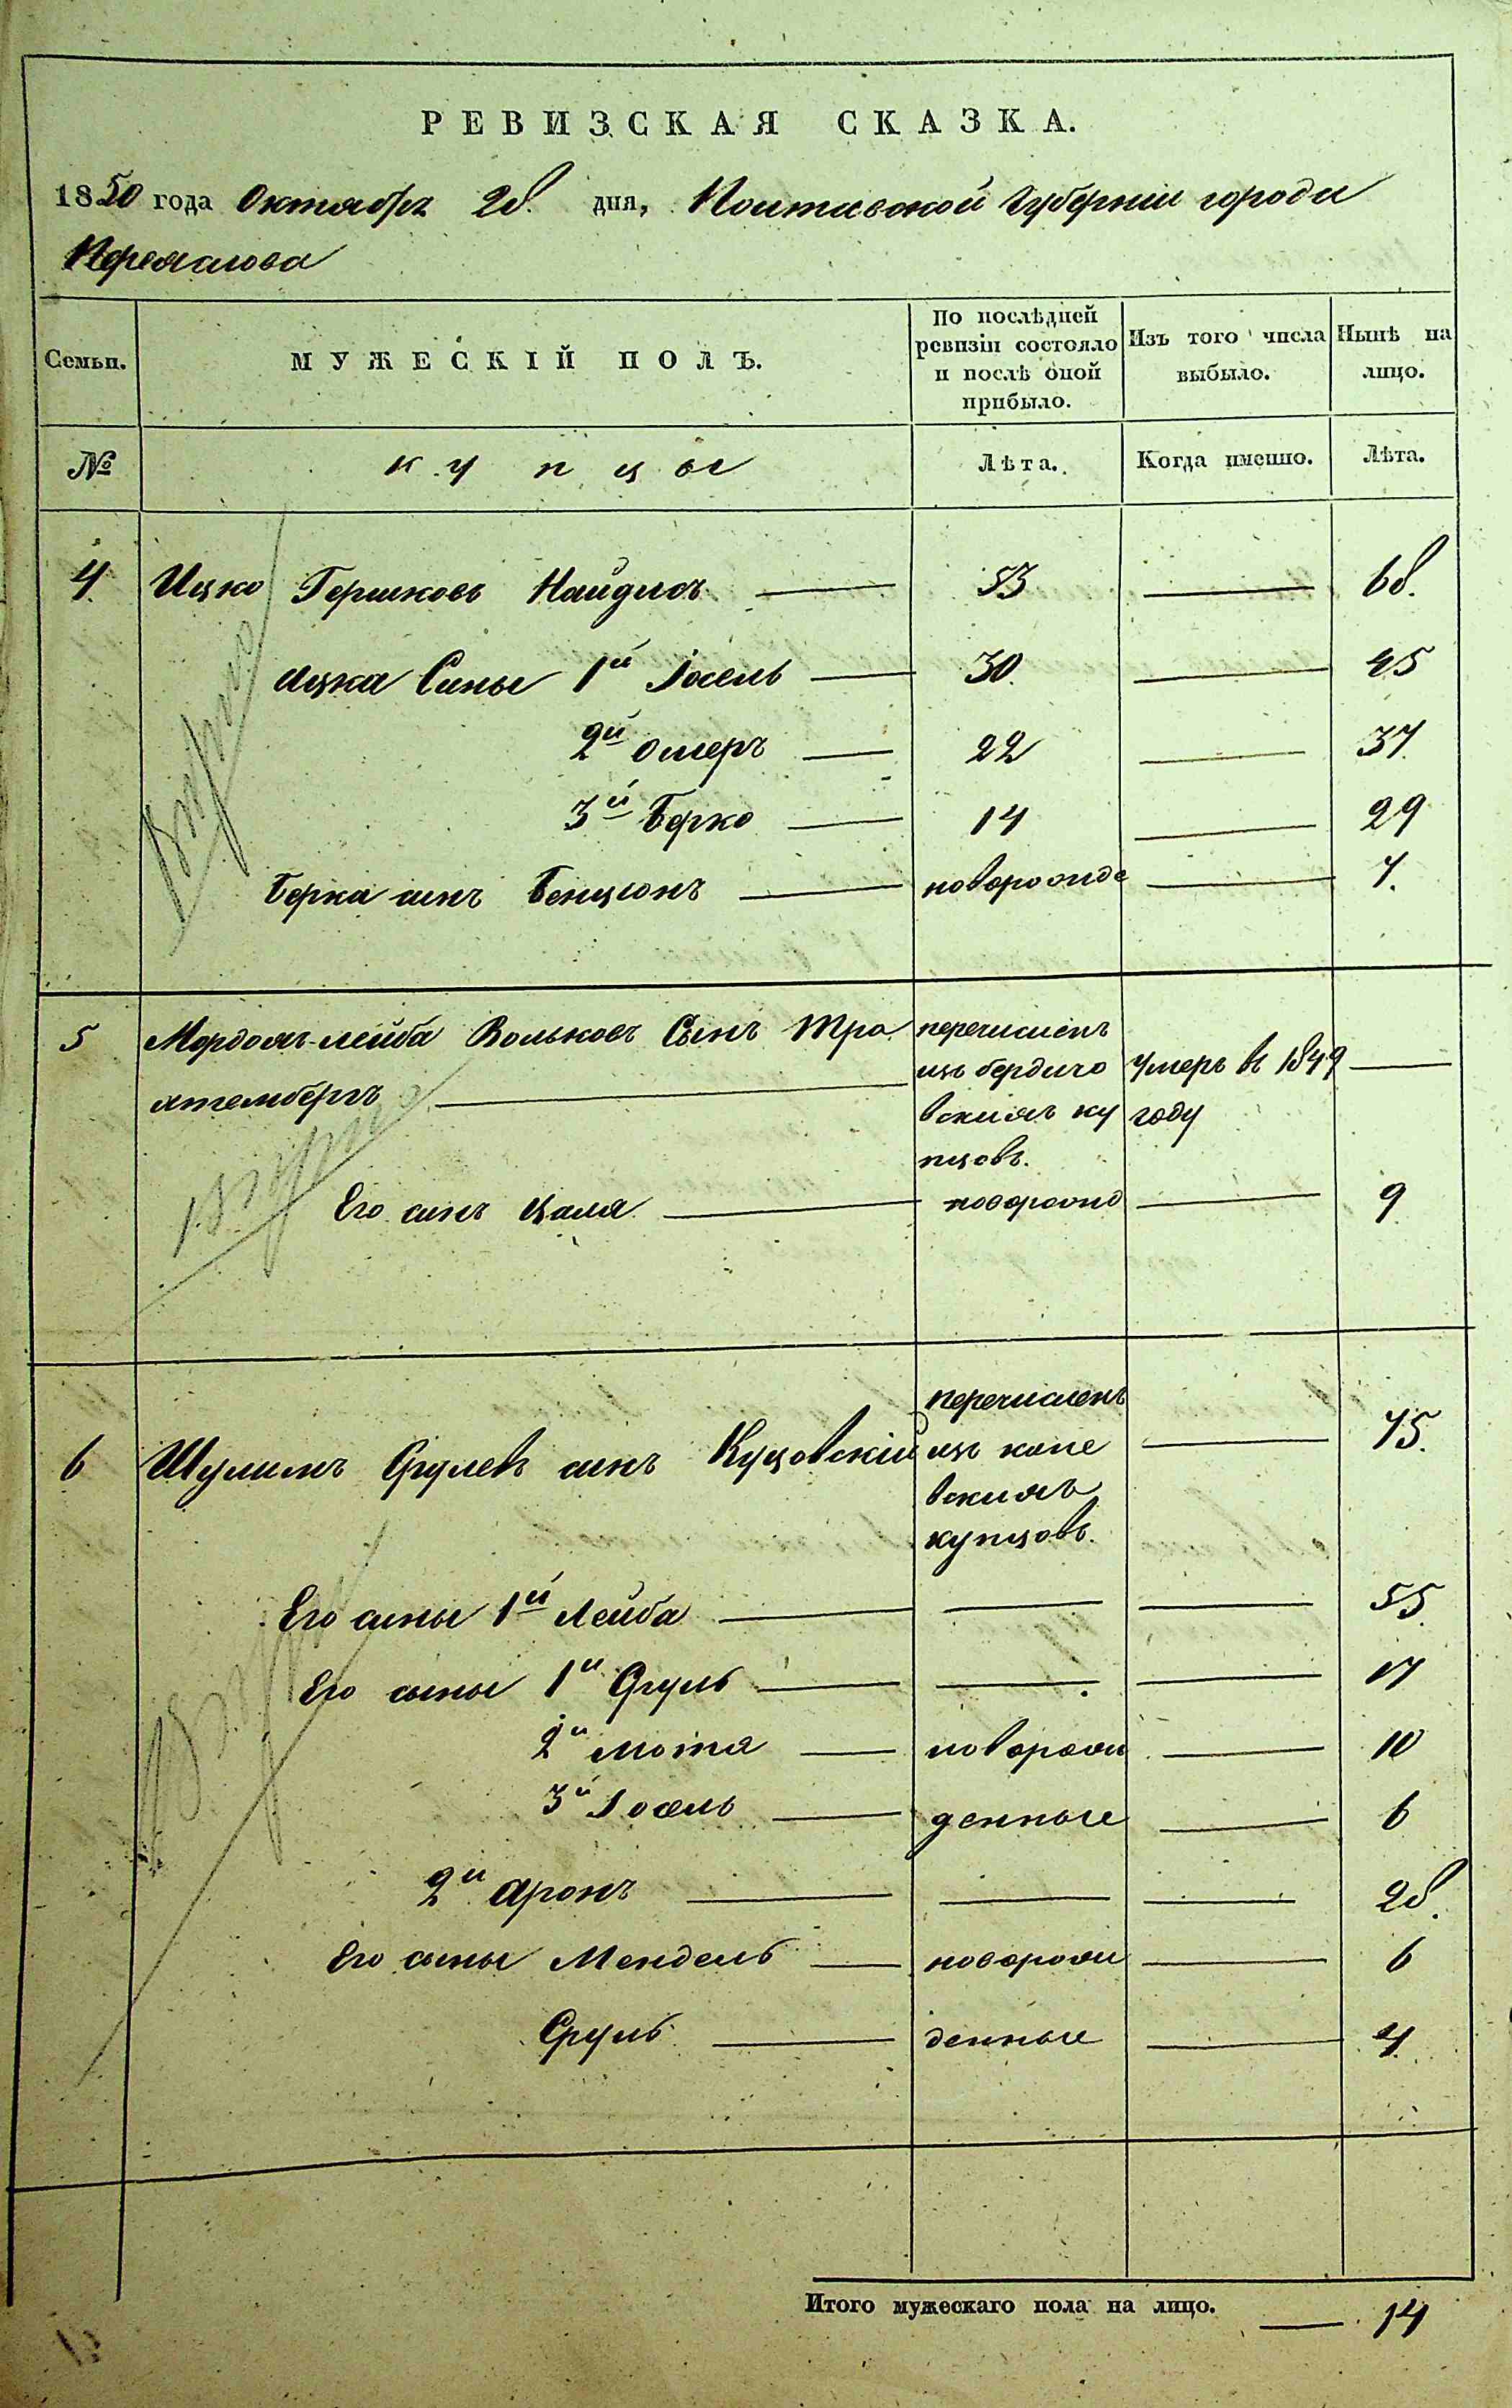 РЕВИЗСКАЯ СКАЗКА.
1850 года Октября 28. дня, Полтавской Губернии города
Переяслова
Семьи. МУЖЕСКІЙ ПОЛЪ. По послѣдней ревизіи состояло и послѣ оной прибыло. Изъ того числа выбыло. Нынѣ на лицо.
№ купцы Лѣта. Когда именно. Лѣта.
4. Ицко Гершковъ Найдисъ 53 68.
Ицка Сины 1й Іосель 30. 45
2й Омеръ 22 37.
3й Берко 14 29
Берка синъ Бенционъ новорожде 7.
5 Мордохъ-лейба Вольковъ Сынъ Тра перечисленъ
изъ бердиче умеръ въ 1849
хтембергъ вскихъ ку году
пцовъ.
Его синъ Цаля новорожд 9
перечисленъ
6 Шулимъ Срулевъ синъ Куцовскій изъ кане 75.
вскихъ
купцовъ.
Его сины 1й Лейба 55.
Его сыны 1й Сруль 17
2й Мотя новорож 10
3й Іосель денные 6
2й Аронъ 28.
Его сыны Мендель новорож 6
Сруль денные 4.
Итого мужескаго пола на лицо. 14